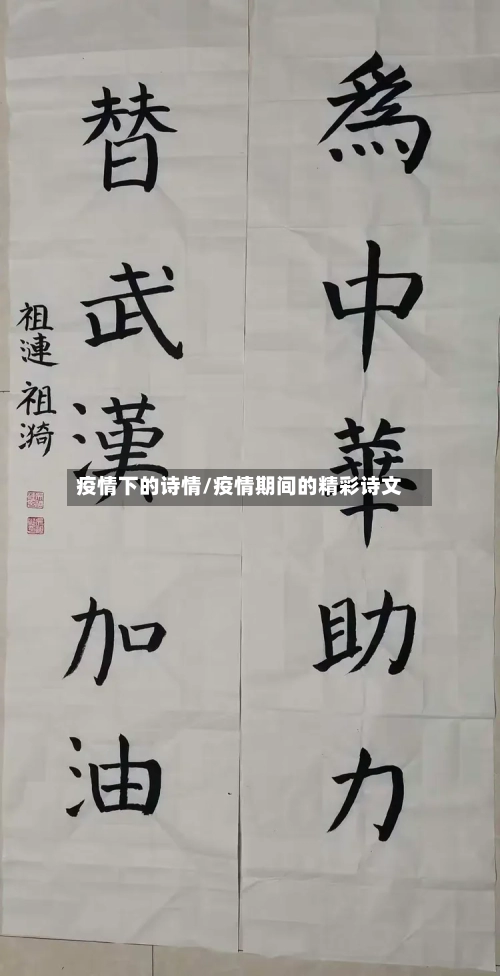 為中華助力
替武漢加油
祖漣 祖漪
疫情下的诗情/疫情期间的精彩诗文